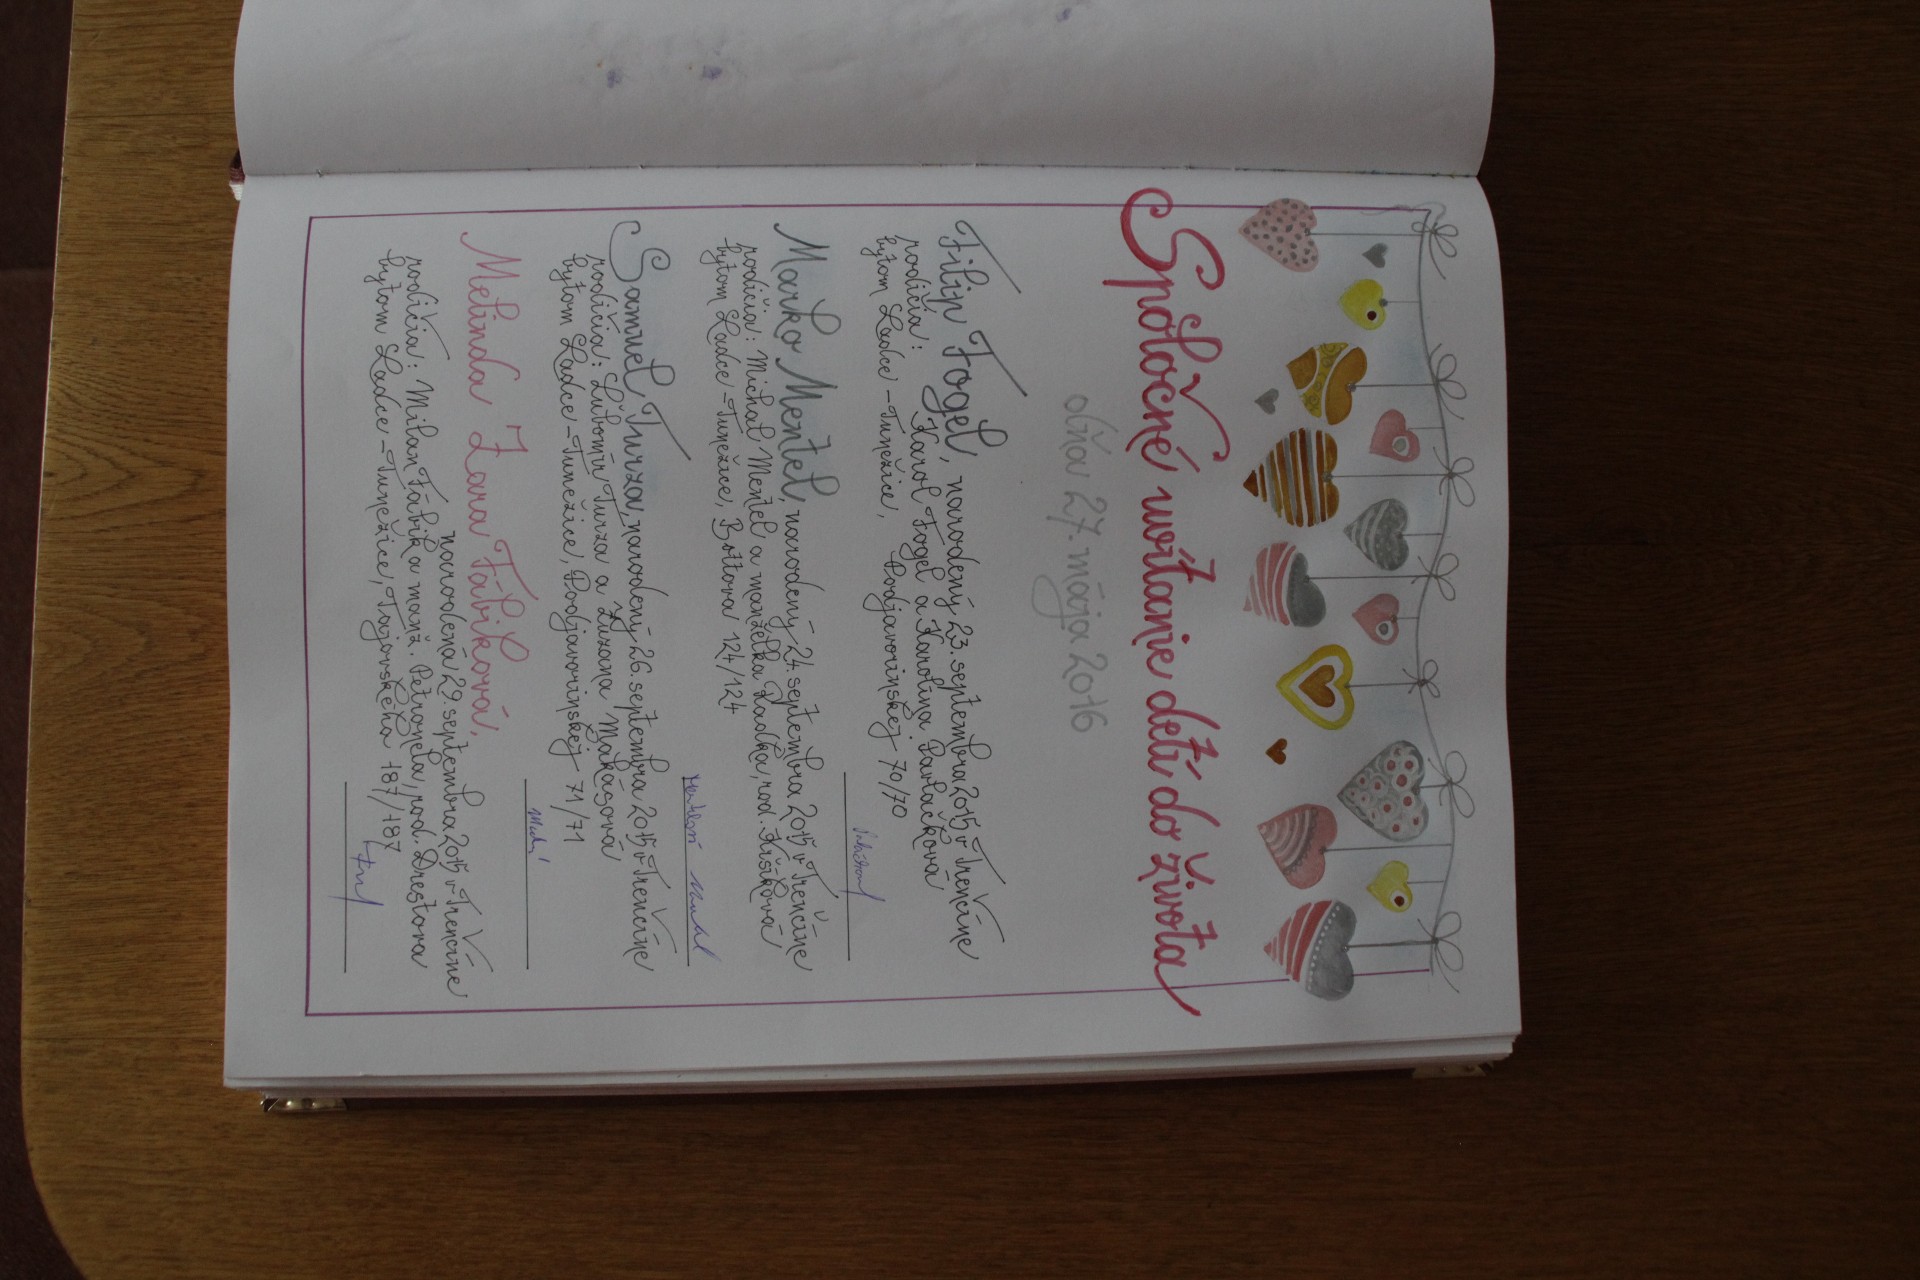 Spoločné uvítanie detí do života
dňa 27. mája 2016
Filip Fogel, narodený 23. septembra 2015 v Trenčíne
rodičia: Karol Fogel a Karolína Parlačková
bytom Ladce - Tunežice, Podjavorinskej 70/70
Marko Mentel, narodený 24. septembra 2015 v Trenčíne
rodičia: Michal Mentel a manželka Radka, rod. Kršíková
bytom Ladce - Tunežice, Bottova 124/124
Samuel Turza, narodený 26. septembra 2015 v Trenčíne
rodičia: Ľubomír Turza a Zuzana Makásová
bytom Ladce - Tunežice, Podjavorinskej 71/71
Melinda Zara Fábiková,
narodená 29. septembra 2015 v Trenčíne
rodičia: Milan Fábik a manž. Petronela, rod. Drestova
bytom Ladce - Tunežice, Tajovského 187/187